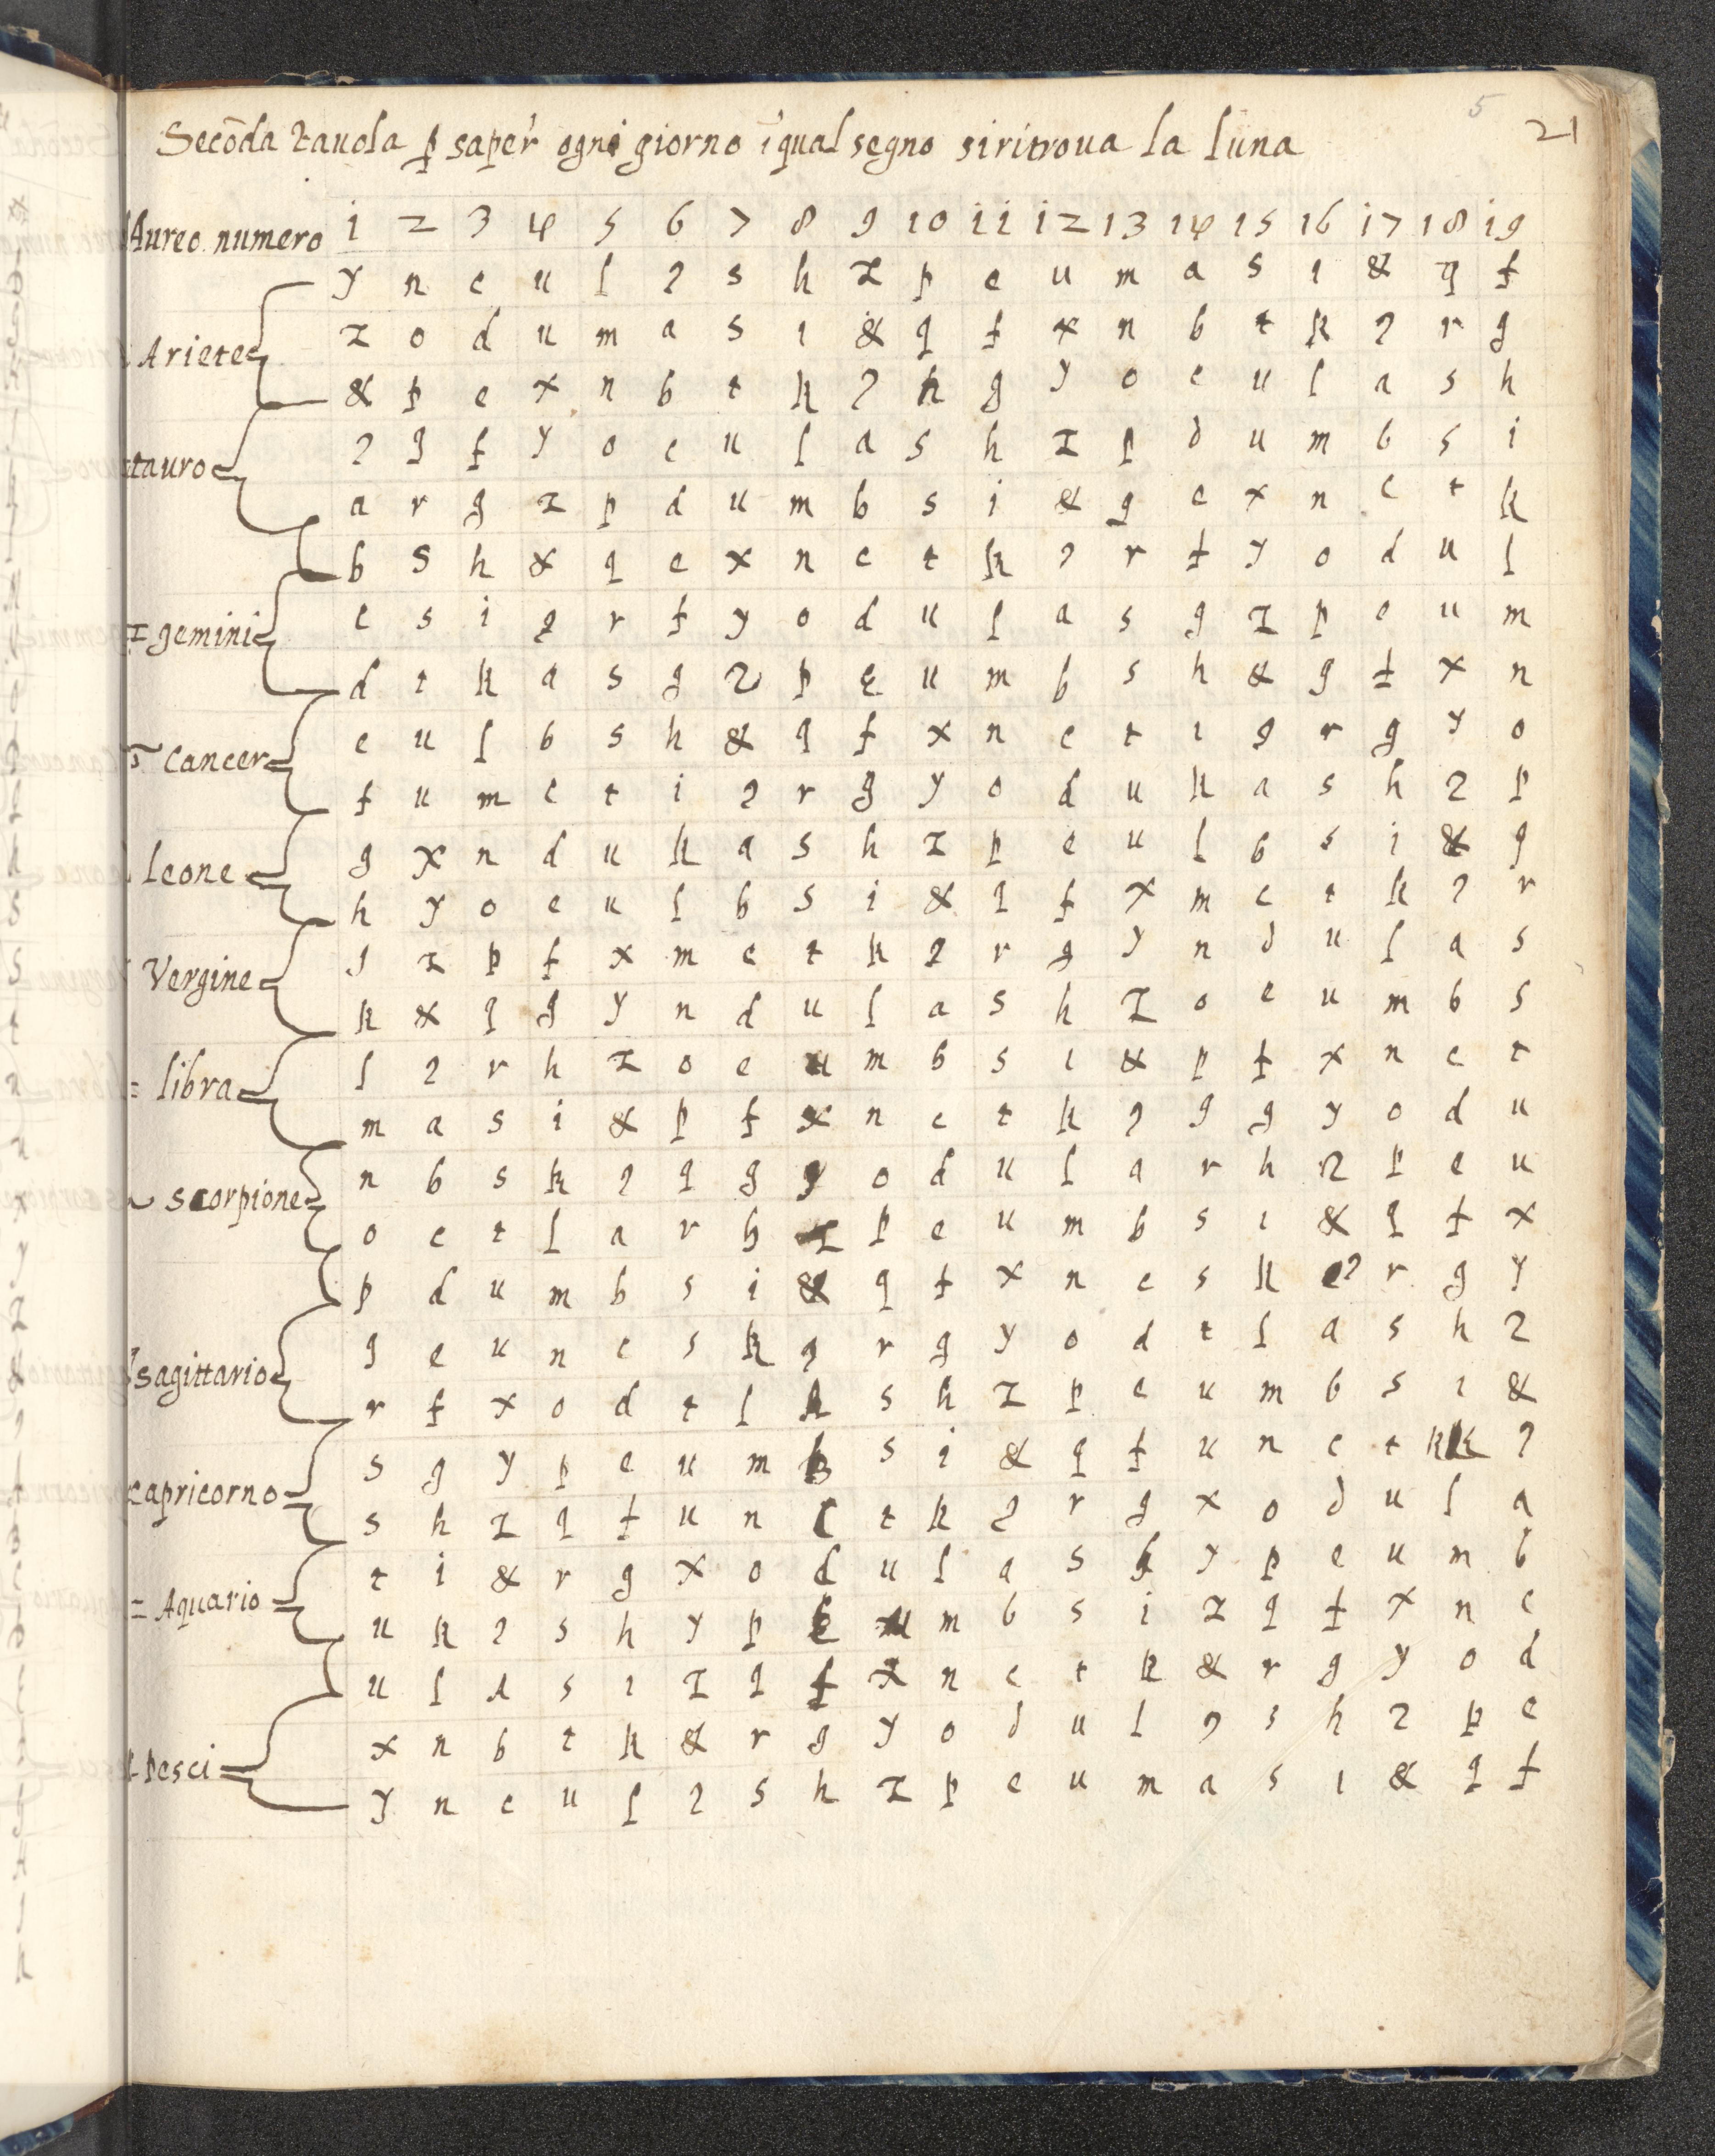 5
21
Secōda tauola ꝑ saper ogni giorno ī qual segno si ritroua la luna
Aureo numero 1 2 3 4 5 6 7 8 9 10 11 12 13 14 15 16 17 18 19
y n c u l 9 s h z p e u m a s i & q f
Ariete z o d u m a s i & q f x n b t k 9 r g
& p e x n b t k 9 h g y o c u l a s h
tauro 9 q f y o c u l a s h z p d u m b s i
a r g z p d u m b s i & q e x n c t k
b s h & q e x n c t k 9 r f y o d u l
gemini c s i 9 r f y o d u l a s g z p e u m
d t k a s g z p e u m b s h & q f x n
Cancer e u l b s h & q f x n c t i 9 r g y o
f u m c t i 9 r g y o d u k a s h z p
leone g x n d u k a s h z p e u l b s i & q
h y o e u l b s i & q f x m c t k 9 r
Vergine j z p f x m c t k 9 r g y n d u l a s
k & q g y n d u l a s h z o e u m b s
libra l 9 r h z o e u m b s i & p f x n c t
m a s i & p f x n c t k 9 q g y o d u
scorpione n b s k 9 q g y o d u l a r h z p e u
o c t l a r h z p e u m b s i & q f x
p d u m b s i & q f x n c s k 9 r g y
sagittario q e u n c s k 9 r g y o d t l a s h z
r f x o d t l s h z p e u m b s i &
capricorno s g y p e u m b s i & q f u n c t k 9
s h z q f u n c t k 9 r g x o d u l a
Aquario t i & r g x o d u l a s h y p e u m b
u k 9 s h y p e u m b s i z q f x n c
u l a s i z q f x n c t k & r g y o d
pesci x n b t k & r g y o d u l 9 s h z p e
y n c u l 9 s h z p e u m a s i & q f